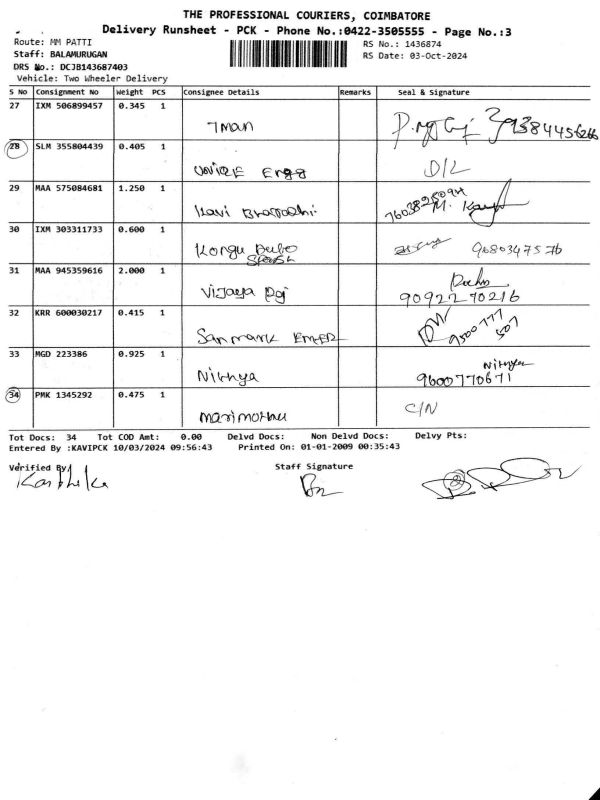 THE PROFESSIONAL COURIERS, COIMBATORE
Delivery Runsheet - PCK - Phone No.:0422-3505555 - Page No.:3
Route: MM PATTI RS No.: 1436874
Staff: BALAMURUGAN RS Date: 03-Oct-2024
DRS No.: DCJB143687403
Vehicle: Two Wheeler Delivery
S No Consignment No Weight PCS Consignee Details Remarks Seal & Signature
27 IXM 506899457 0.345 1
28 SLM 355804439 0.405 1 D/L
29 MAA 575084681 1.250 1 Kavi
30 IXM 303311733 0.600 1 Kongu 9680347576
31 MAA 945359616 2.000 1 Vijaya 9092270216
32 KRR 600030217 0.415 1 Sanmark
33 MGD 223386 0.925 1 Nithya Nithya 9600770671
34 PMK 1345292 0.475 1 Marimuthu C/N
Tot Docs: 34 Tot COD Amt: 0.00 Delvd Docs: Non Delvd Docs: Delvy Pts:
Entered By :KAVIPCK 10/03/2024 09:56:43 Printed On: 01-01-2009 00:35:43
Verified By Staff Signature
Karthika